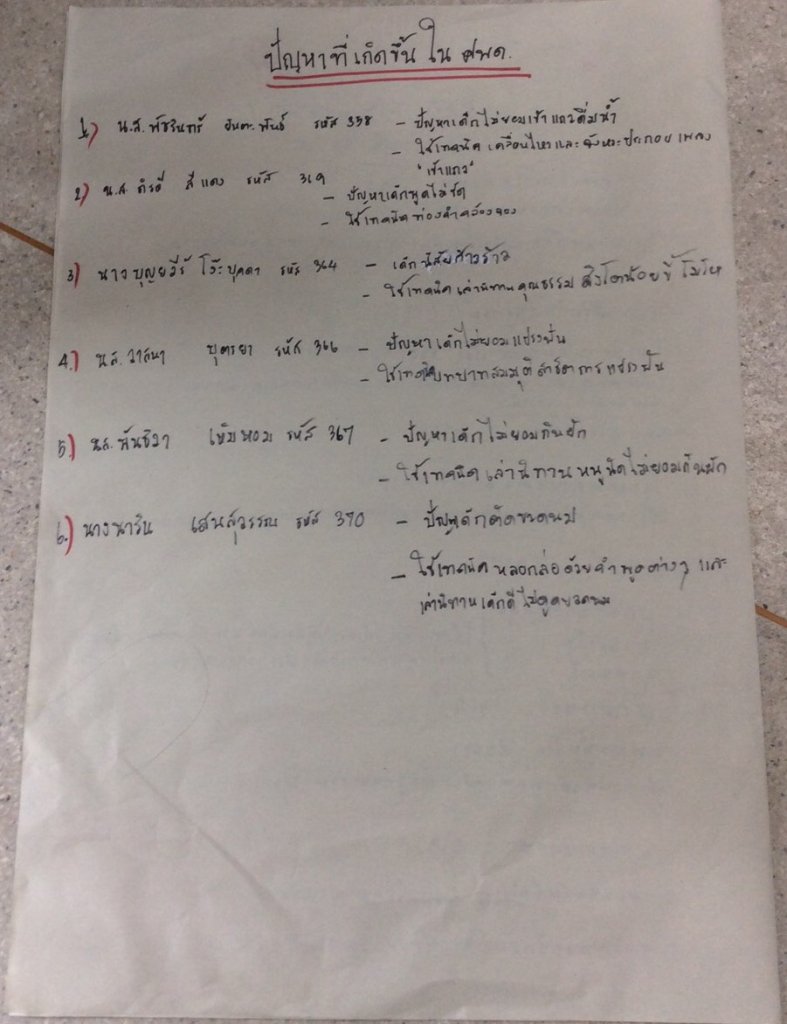 ปัญหาที่เกิดขึ้น ใน ศพด.
1) น.ส. พัชรินทร์ อินตะพันธ์ รหัส 358 - ปัญหาเด็กไม่ยอมเข้าแถวดื่มน้ำ
- ใช้เทคนิค เคลื่อนไหวและจังหวะประกอบเพลง
"เข้าแถว"
2) น.ส. สีแดง รหัส 319
- ปัญหาเด็กพูดไม่ชัด
- ใช้เทคนิคท่องคำคล้องจอง
3) นาง บุญยวีร์ โง๊ะบุคดา รหัส 364 - เด็กนิสัยก้าวร้าว
- ใช้เทคนิคเล่านิทานคุณธรรม สิงโตน้อยขี้โมโห
4.) น.ส. วาสนา บุตรยา รหัส 366 - ปัญหาเด็กไม่ยอมแปรงฟัน
- ใช้เทคนิคบทบาทสมมุติ สาธิตการแปรงฟัน
5.) นส. พันธิวา เข็มหอม รหัส 367 - ปัญหาเด็กไม่ยอมกินผัก
- ใช้เทคนิค เล่านิทาน หนูนิดไม่ยอมกินผัก
6.) นางนาริน เสนสุวรรณ รหัส 370 - ปัญหาเด็กติดขวดนม
- ใช้เทคนิค หลอกล่อด้วยคำพูดต่างๆ และ
เล่านิทานเด็กดีไม่ดูดขวดนม